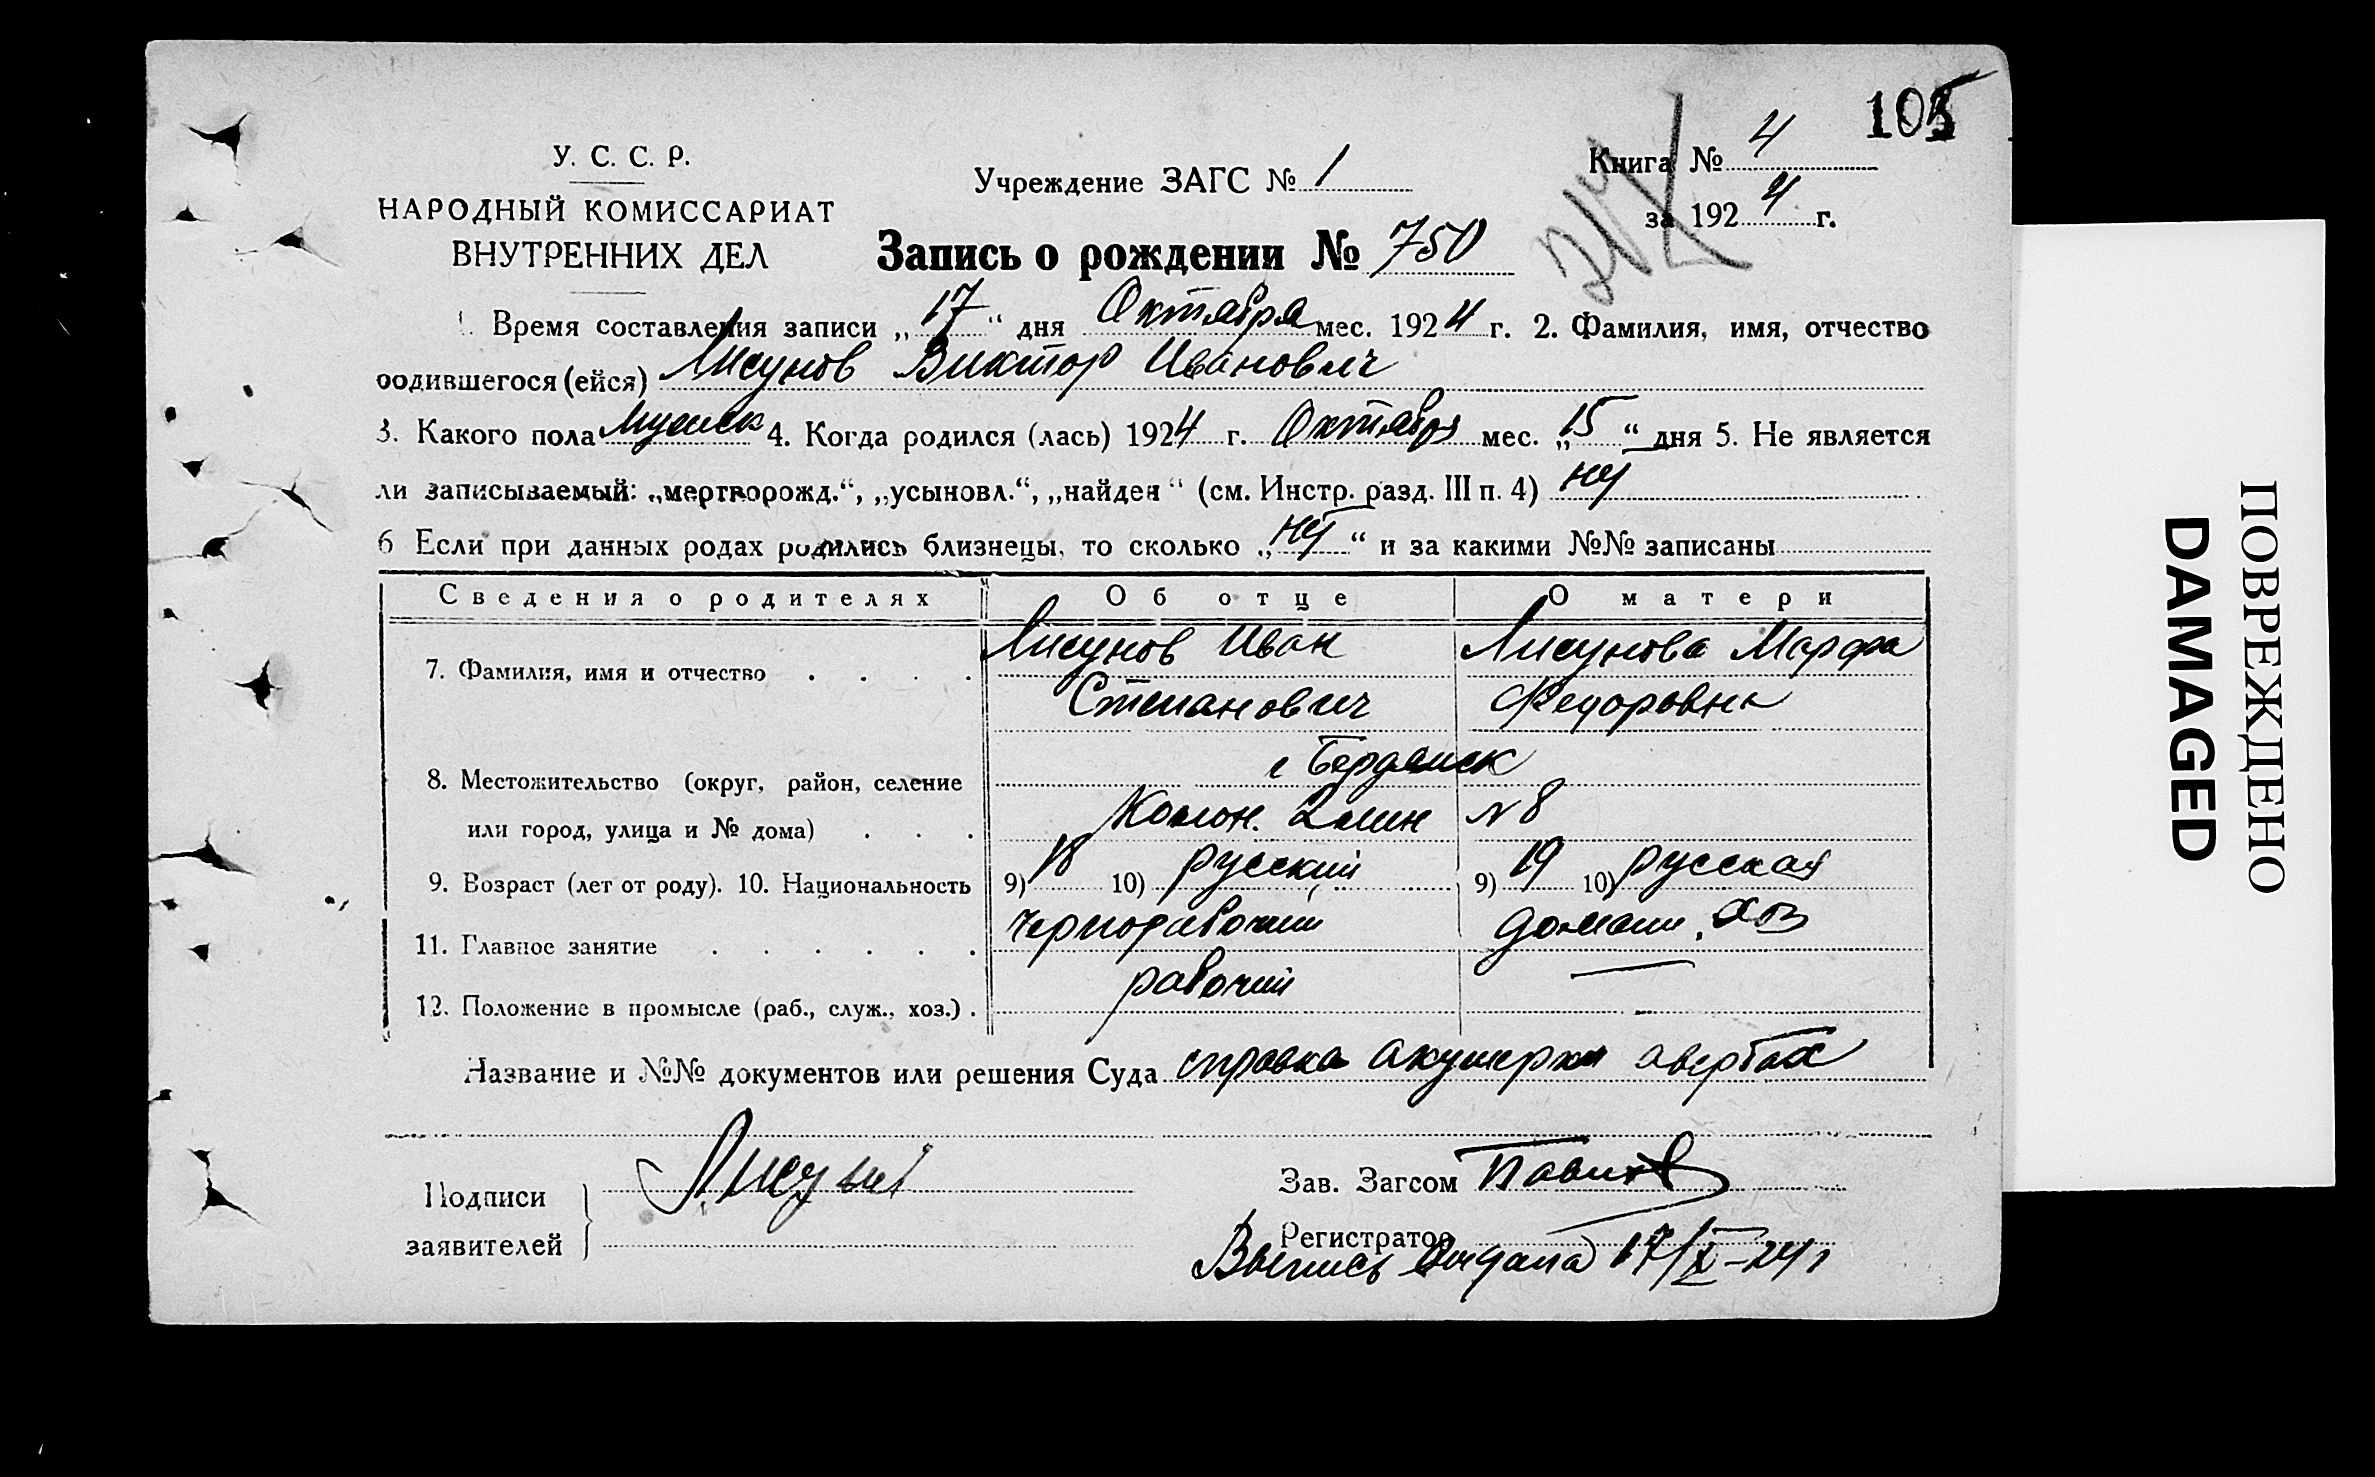 105
У. С. С. Р.
НАРОДНЫЙ КОМИССАРИАТ
ВНУТРЕННИХ ДЕЛ
Учреждение ЗАГС № 1
Книга № 4
за 1924 г.
Запись о рождении № 750
1. Время составления записи „17“ дня Октября мес. 1924 г. 2. Фамилия, имя, отчество
родившегося (ейся) Лисунов Виктор Иванович
3. Какого пола мужск 4. Когда родился (лась) 1924 г. Октября мес. „15“ дня 5. Не является
ли записываемый: „мертворожд.“, „усыновл.“, „найден“ (см. Инстр. разд. III п. 4) нет
6 Если при данных родах родились близнецы, то сколько „нет“ и за какими №№ записаны
Сведения о родителях Об отце О матери
7. Фамилия, имя и отчество Лисунов Иван Лисунова Марфа
Степанович Федоровна
г Бердянск
8. Местожительство (округ, район, селение
или город, улица и № дома) Колон. №8
9. Возраст (лет от роду). 10. Национальность 9) 18 10) русский 9) 19 10) русская
11. Главное занятие чернорабочий домашн. хоз
12. Положение в промысле (раб., служ., хоз.) рабочий —
Название и №№ документов или решения Суда справка акушерки Авербах
Подписи
заявителей
Лисунов
Зав. Загсом
Регистратор
Выпись выдана 17/X-24г
ПОВРЕЖДЕНО
DAMAGED